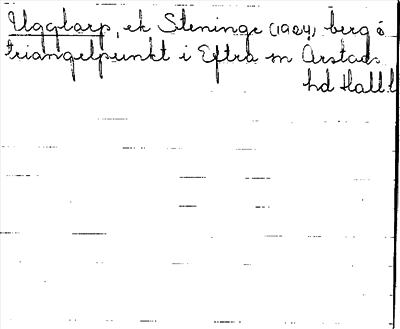 Ugglarp, ek Steninge (1924), berg o
triangelpunkt i Eftra sn Årstads
hd Hall l